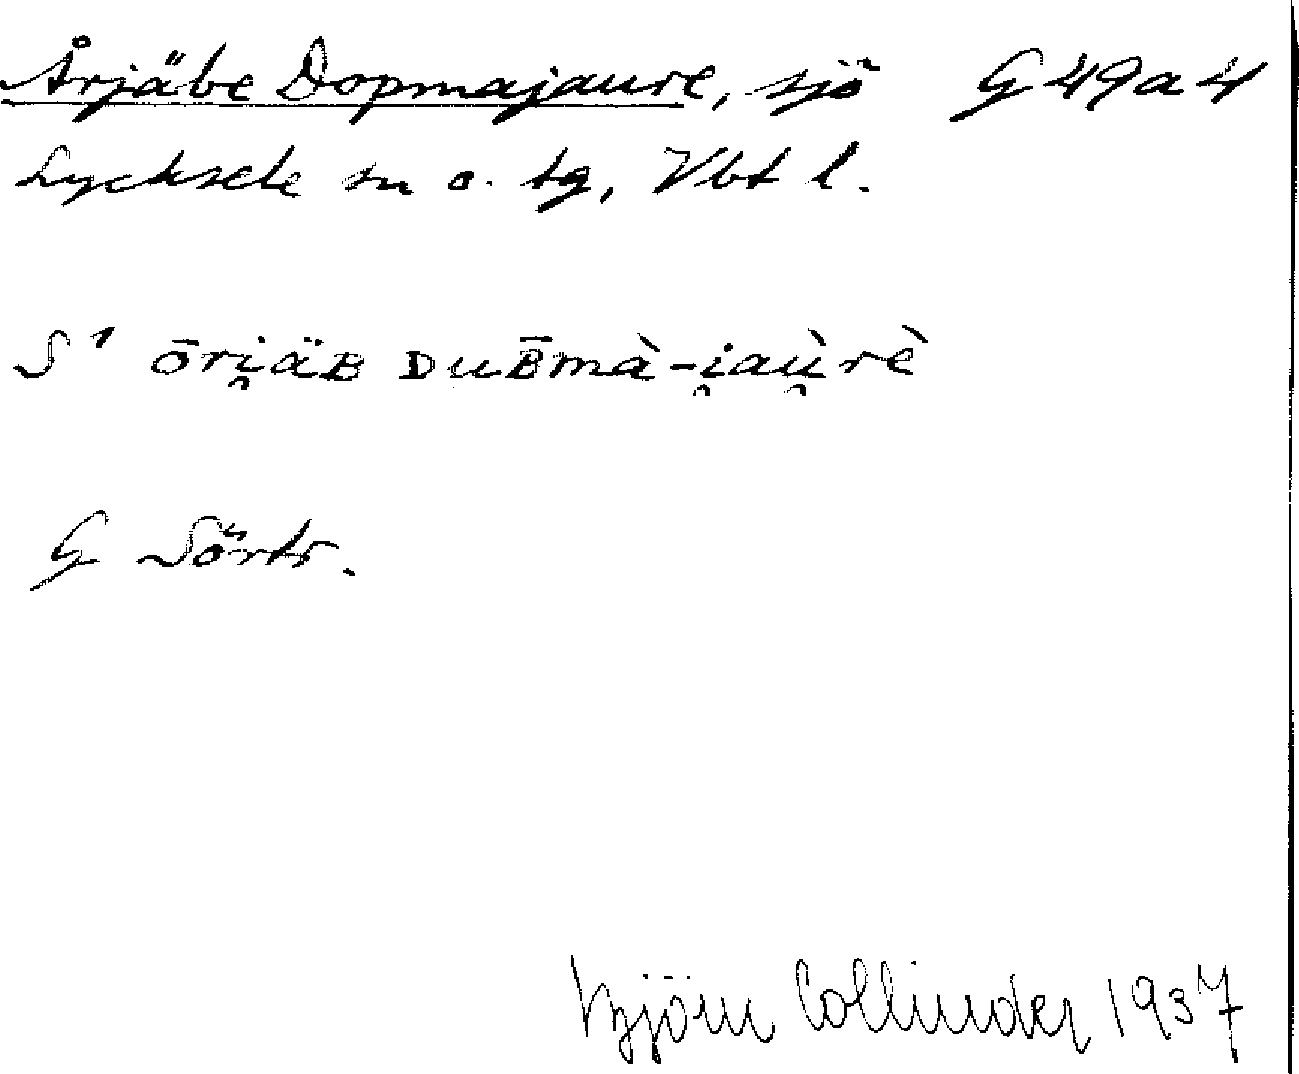 Årjäbe Dopmajaure, sjö G 49 a 4
Lycksele sn o. tg, Vbt l.
S¹ ōri̯äʙ ᴅuʙ̄mà-i̯aù̯rè
G Sörtr.
Björn Collinder 1937